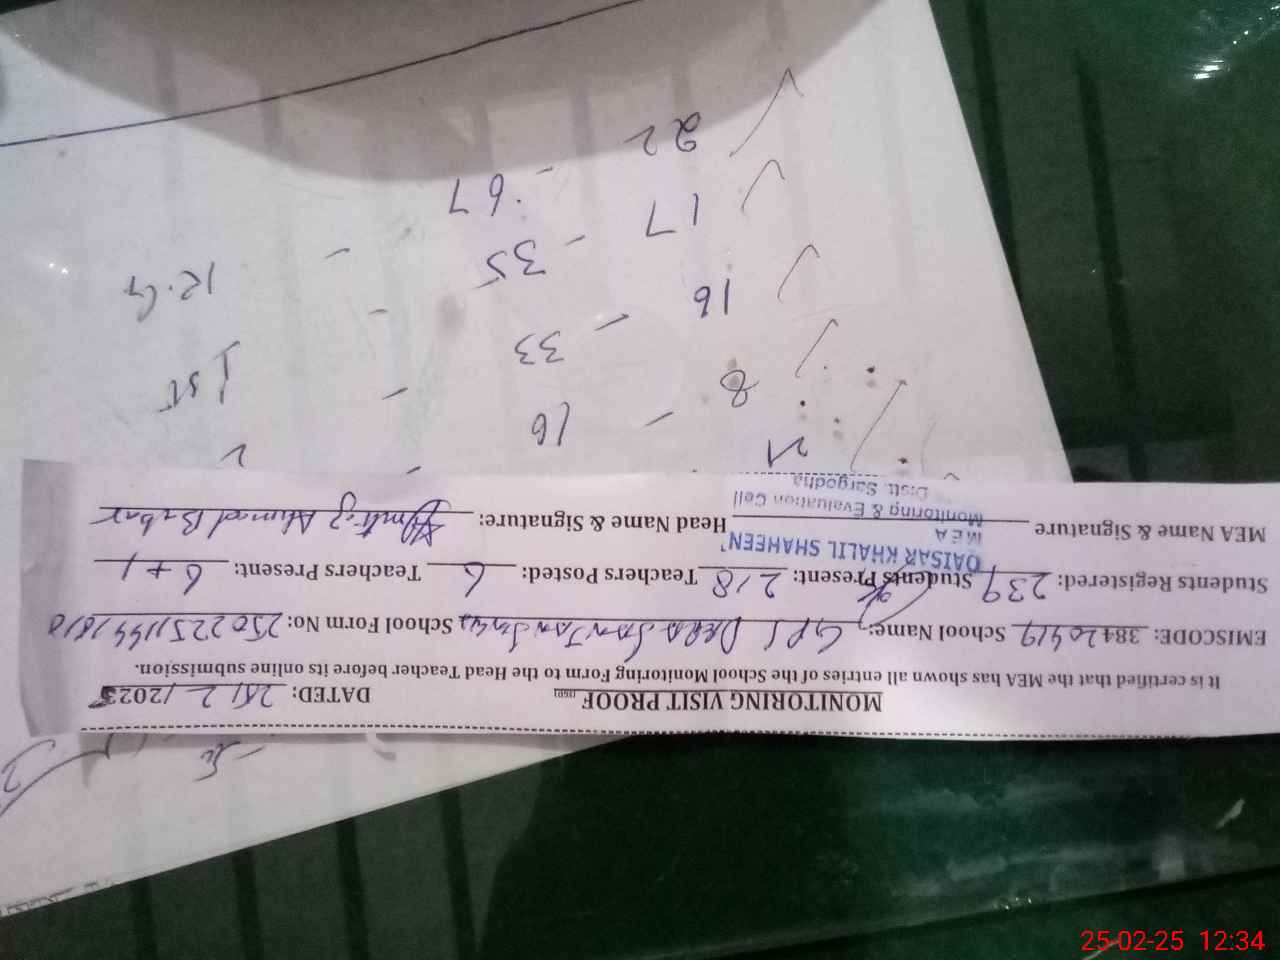 MONITORING VISIT PROOF DATED: 25/2/2025
It is certified that the MEA has shown all entries of the School Monitoring Form to the Head Teacher before its online submission.
EMISCODE: 38420419 School Name: GPS DERA School Form No:
Students Registered: 239 Students Present: 218 Teachers Posted: 6 Teachers Present: 6+1
MEA Name & Signature Head Name & Signature: Ahmad Babar
QAISAR KHALIL SHAHEEN
MEA
Monitoring & Evaluation Cell
Distt. Sargodha
21
2 - 16 - 8
1st - 33 - 16
K.G - 35 - 17
- 67 - 22
25-02-25 12:34